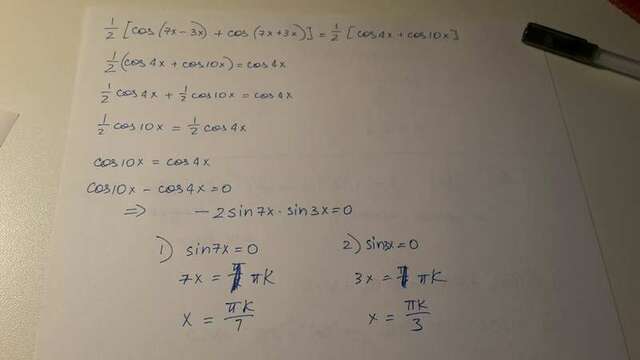 1/2 [cos(7x-3x) + cos(7x+3x)] = 1/2 [cos4x + cos10x]
1/2 (cos4x + cos10x) = cos4x
1/2 cos4x + 1/2 cos10x = cos4x
1/2 cos10x = 1/2 cos4x
cos10x = cos4x
cos10x - cos4x = 0
⇒ -2sin7x · sin3x = 0
1) sin7x = 0 2) sin3x = 0
7x = πK 3x = πK
x = πK/7 x = πK/3